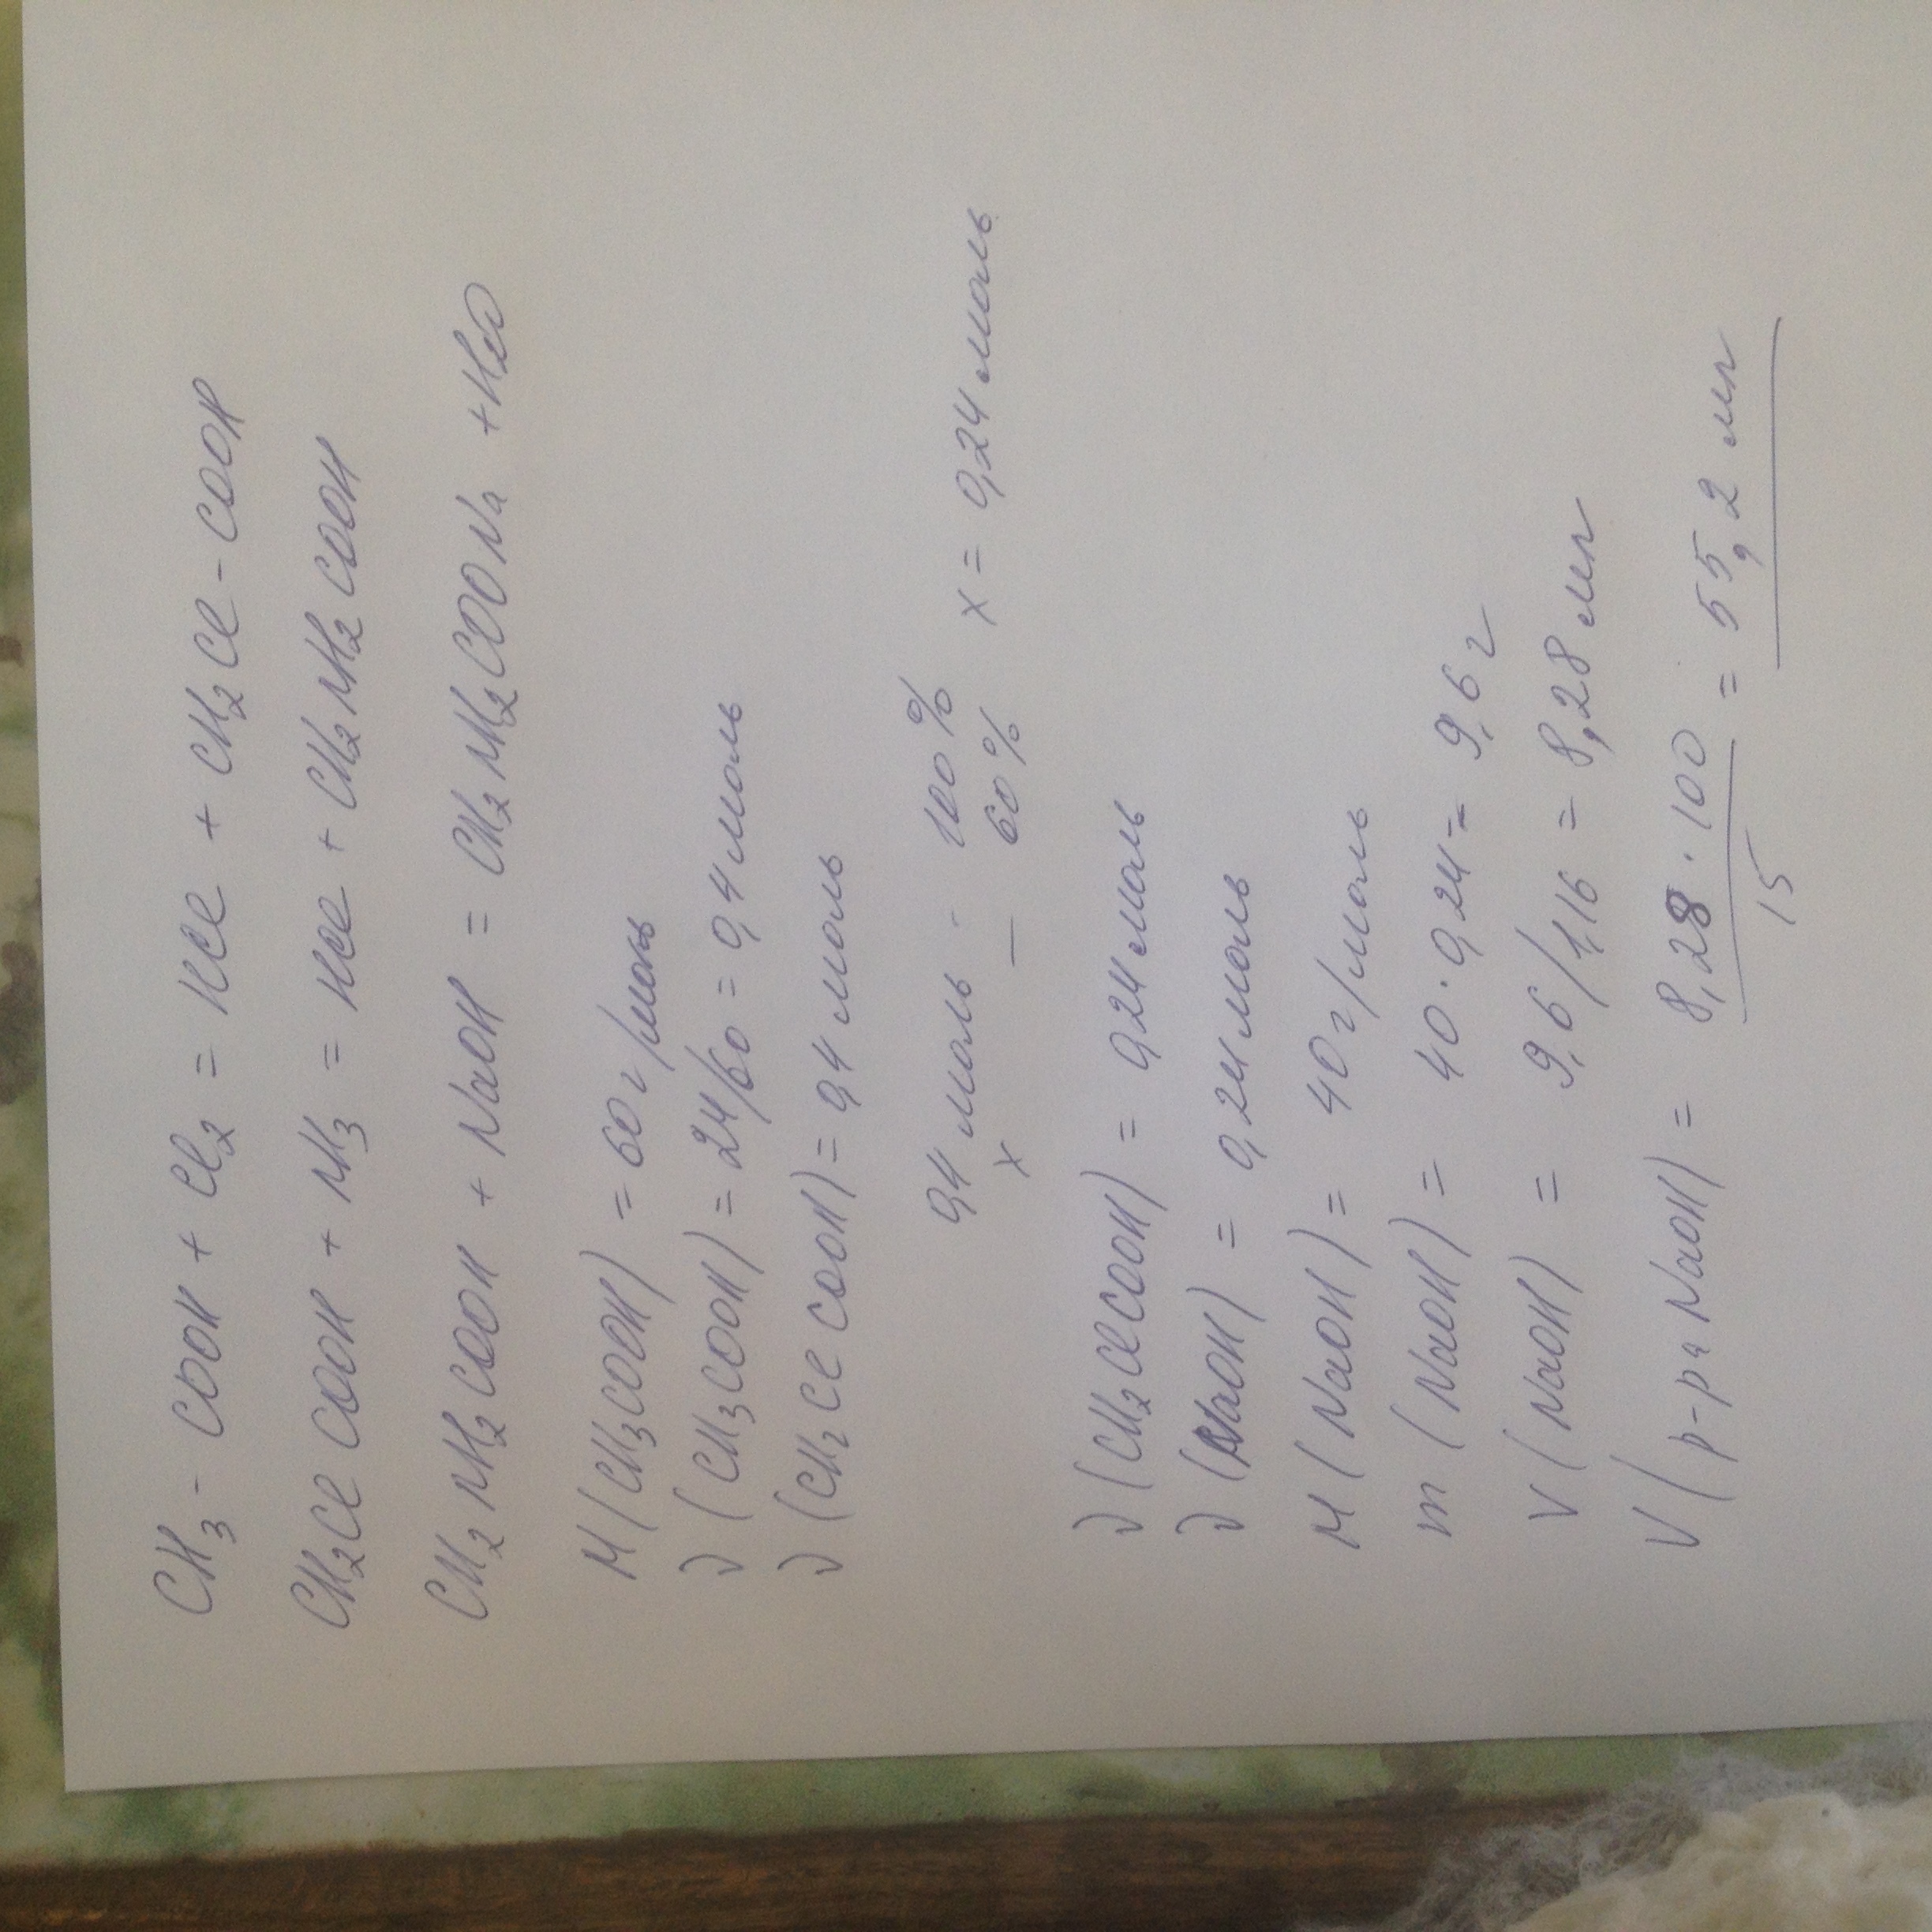 CH₃ - COOH + Cl₂ = HCl + CH₂Cl - COOH
CH₂Cl COOH + NH₃ = HCl + CH₂NH₂COOH
CH₂NH₂COOH + NaOH = CH₂NH₂COONa + H₂O
M (CH₃COOH) = 60 г/моль
ν (CH₃COOH) = 24/60 = 0,4 моль
ν (CH₂Cl COOH) = 0,4 моль
0,4 моль - 100%
x — 60% x = 0,24 моль
ν (CH₂ClCOOH) = 0,24 моль
ν (NaOH) = 0,24 моль
M (NaOH) = 40 г/моль
m (NaOH) = 40 · 0,24 = 9,6 г
V (NaOH) = 9,6/1,16 = 8,28 мл
V (р-ра NaOH) = 8,28 · 100 / 15 = 55,2 мл